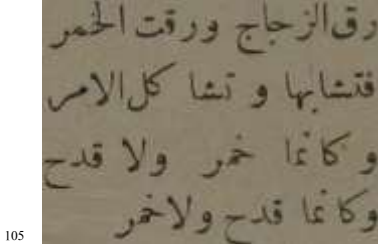 رق الزجاج ورقت الخمر
فتشابها و تشا كل الامر
و كانما خمر ولا قدح
وكانما قدح ولا خمر
105